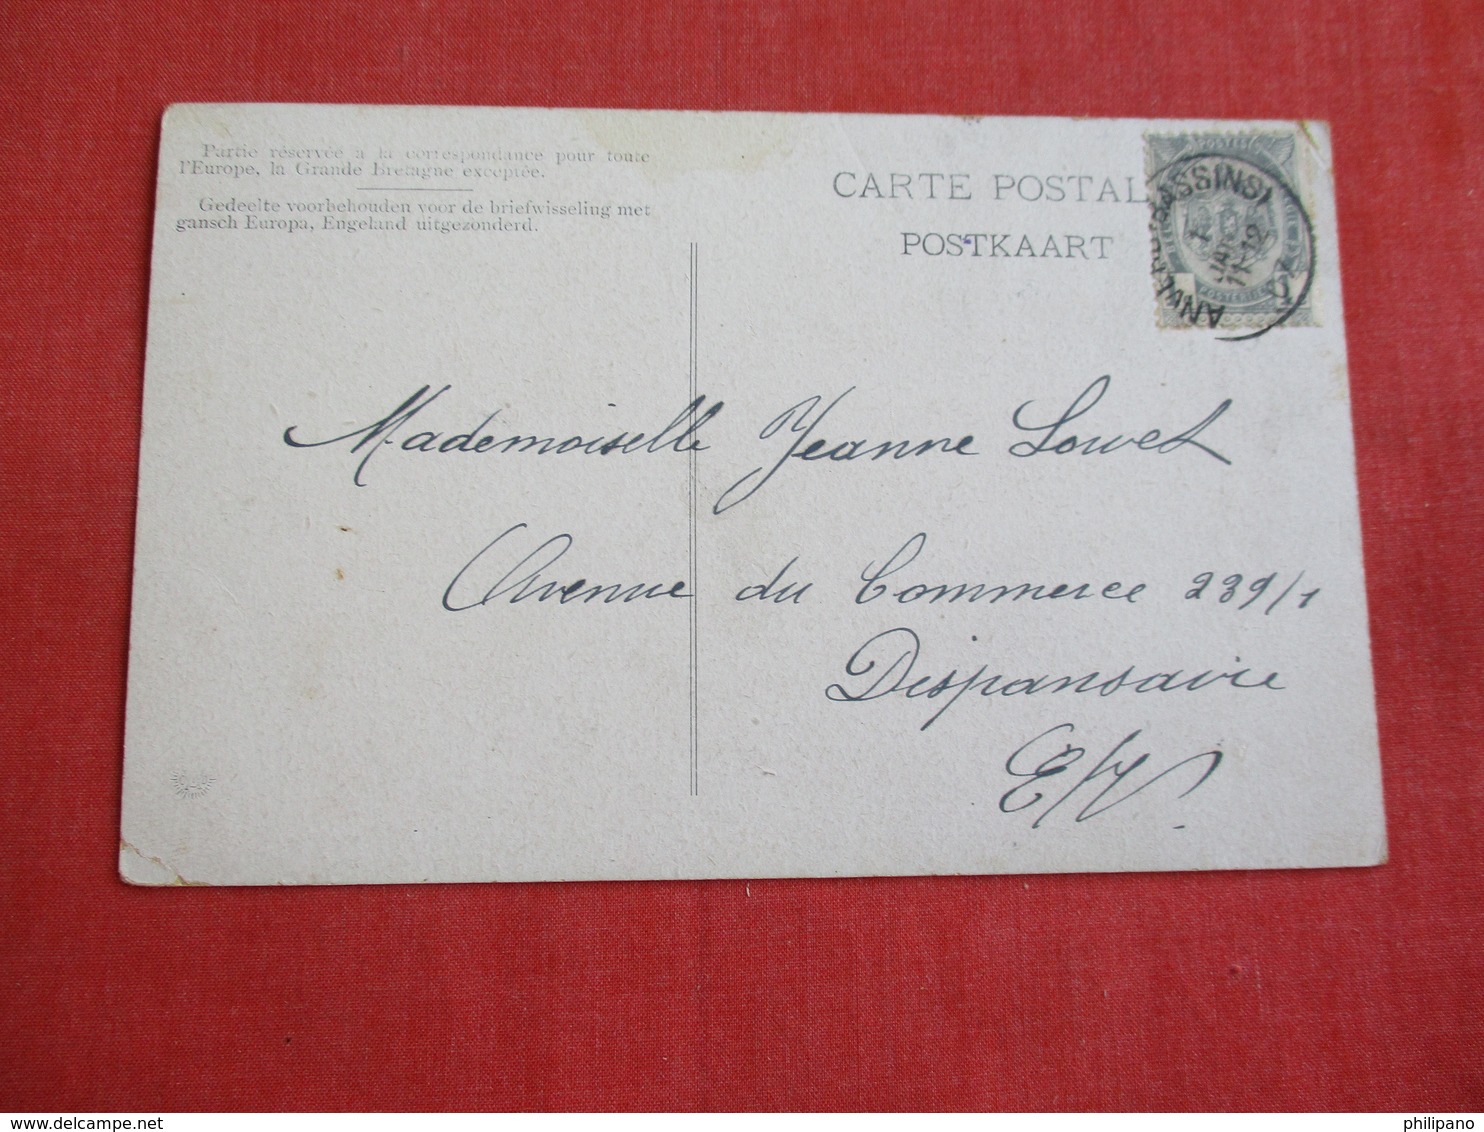 Partie réservée à la correspondance pour toute
l'Europe, la Grande Bretagne exceptée.
Gedeelte voorbehouden voor de briefwisseling met
gansch Europa, Engeland uitgezonderd.
CARTE POSTAL
POSTKAART
ANVERS (BASSINS)
1
JAN
11-12
POSTES
POSTERIJEN
1
Mademoiselle Jeanne Lowet
Avenue du Commerce 239/1
Dispansaire
E/V.
philipano
delcampe.net